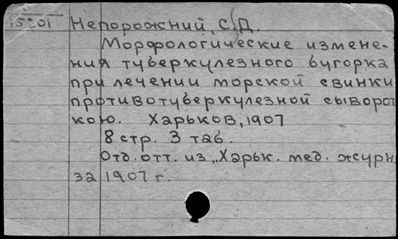 15701 Непорожний, С.Д.
Морфологические измене-
ния туберкулезного бугорка
при лечении морской свинки
противотуберкулезной сыворот
кою. Харьков, 1907
8 стр. 3 таб.
Отд. отт. из „Харьк. мед. журн.
за 1907 г.